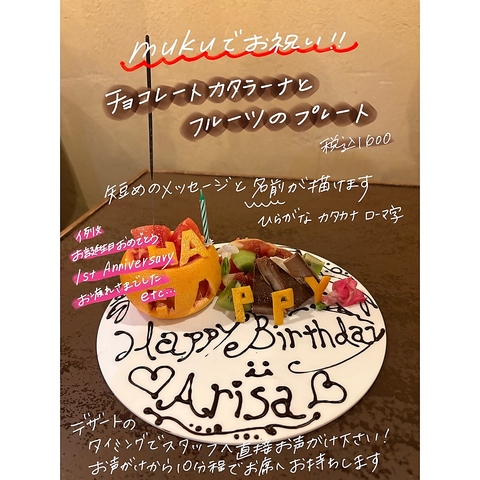 mukuでお祝い!!
チョコレートカタラーナと
フルーツのプレート
税込1600
短めのメッセージと名前が描けます
ひらがな カタカナ ローマ字
例えば
お誕生日おめでとう
1st Anniversary
お疲れさまでした
etc...
HA
PPY
Happy Birthday
Arisa
デザートの
タイミングでスタッフへ直接お声がけ下さい!
お声がけから10分程でお席へお持ちします